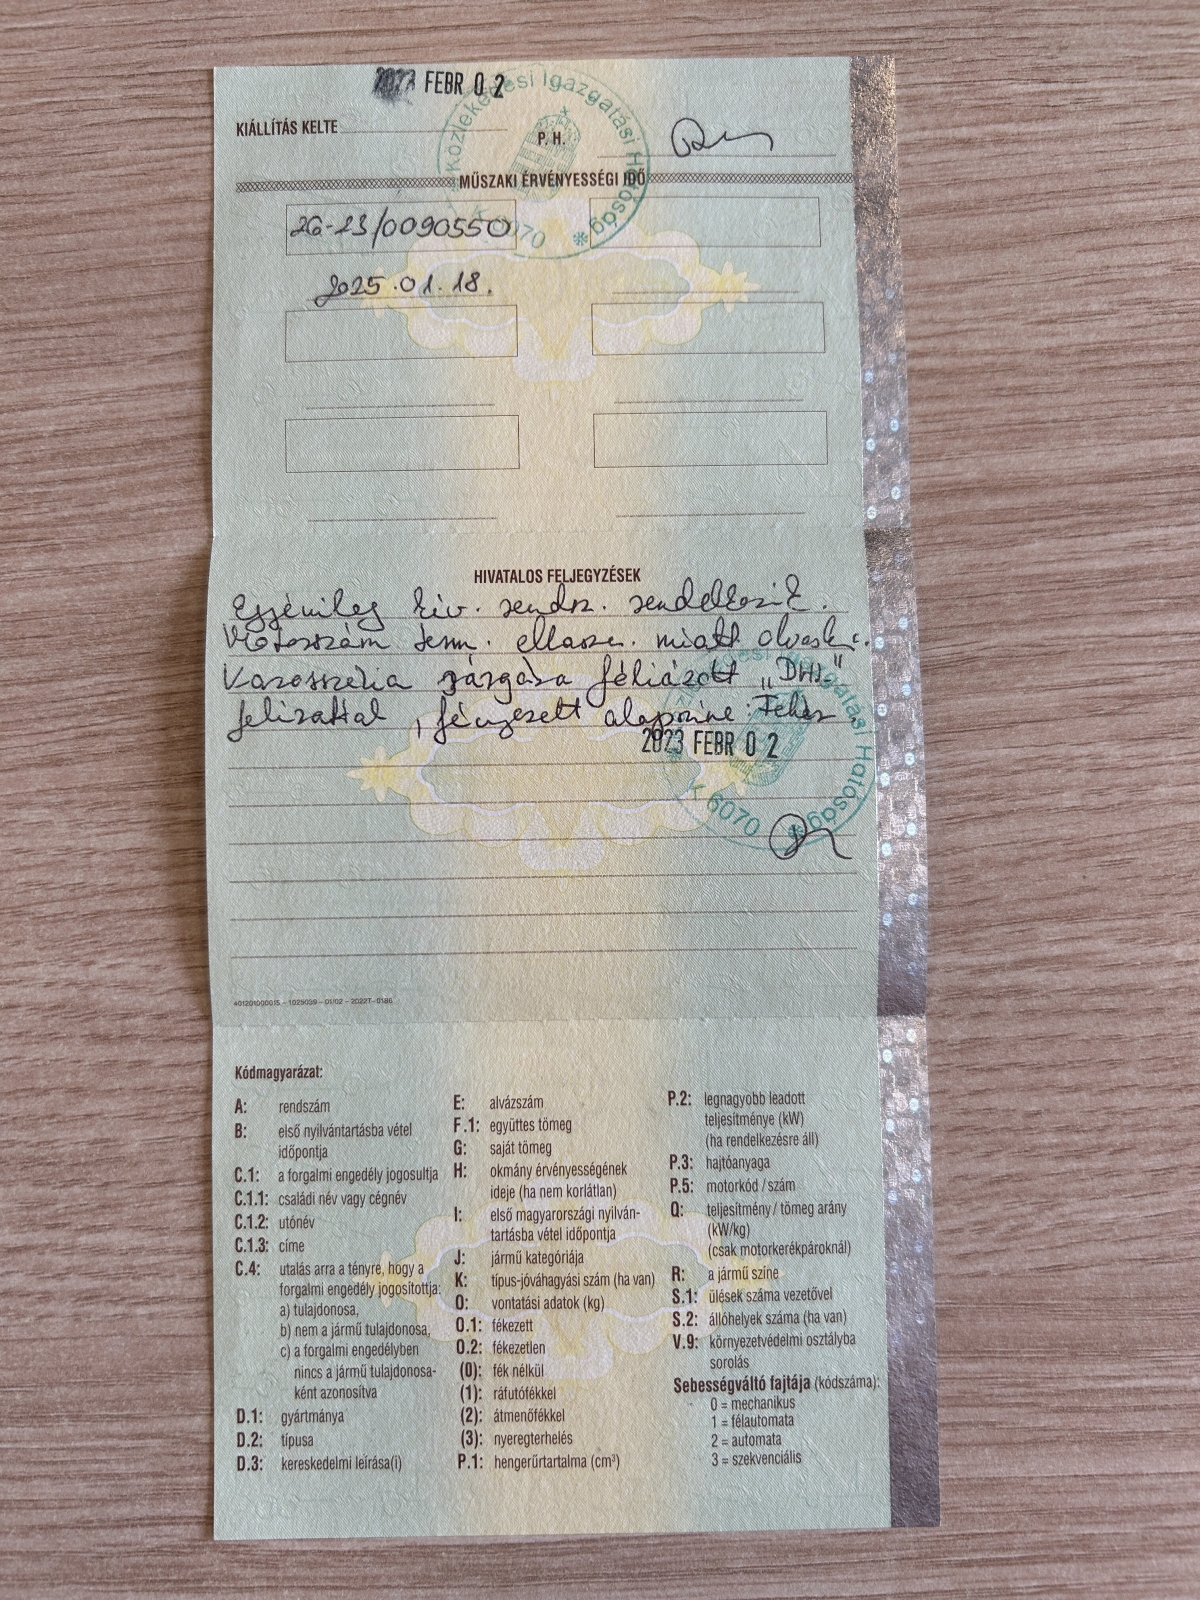 2023 FEBR 02
KIÁLLÍTÁS KELTE
P. H.
Közlekedési Igazgatási Hatóság
K 6070
MŰSZAKI ÉRVÉNYESSÉGI IDŐ
26-23/0090550
2025.01.18.
HIVATALOS FELJEGYZÉSEK
Egyénileg kiv. rendsz. rendelkezik.
Motorszám term. ellasz. miatt
Karosszéria sárgára fóliázott „DHL"
felirattal, fényezett alapszíne: Fehér
2023 FEBR 02
Közlekedési Igazgatási Hatóság
K 6070
401201000015 – 1025039 – 01/02 – 2022T – 0186
Kódmagyarázat:
A: rendszám
B: első nyilvántartásba vétel
időpontja
C.1: a forgalmi engedély jogosultja
C.1.1: családi név vagy cégnév
C.1.2: utónév
C.1.3: címe
C.4: utalás arra a tényre, hogy a
forgalmi engedély jogosítottja:
a) tulajdonosa,
b) nem a jármű tulajdonosa,
c) a forgalmi engedélyben
nincs a jármű tulajdonosa-
ként azonosítva
D.1: gyártmánya
D.2: típusa
D.3: kereskedelmi leírása(i)
E: alvázszám
F.1: együttes tömeg
G: saját tömeg
H: okmány érvényességének
ideje (ha nem korlátlan)
I: első magyarországi nyilván-
tartásba vétel időpontja
J: jármű kategóriája
K: típus-jóváhagyási szám (ha van)
O: vontatási adatok (kg)
O.1: fékezett
O.2: fékezetlen
(0): fék nélkül
(1): ráfutófékkel
(2): átmenőfékkel
(3): nyeregterhelés
P.1: hengerűrtartalma (cm³)
P.2: legnagyobb leadott
teljesítménye (kW)
(ha rendelkezésre áll)
P.3: hajtóanyaga
P.5: motorkód / szám
Q: teljesítmény / tömeg arány
(kW/kg)
(csak motorkerékpároknál)
R: a jármű színe
S.1: ülések száma vezetővel
S.2: állóhelyek száma (ha van)
V.9: környezetvédelmi osztályba
sorolás
Sebességváltó fajtája (kódszáma):
0 = mechanikus
1 = félautomata
2 = automata
3 = szekvenciális